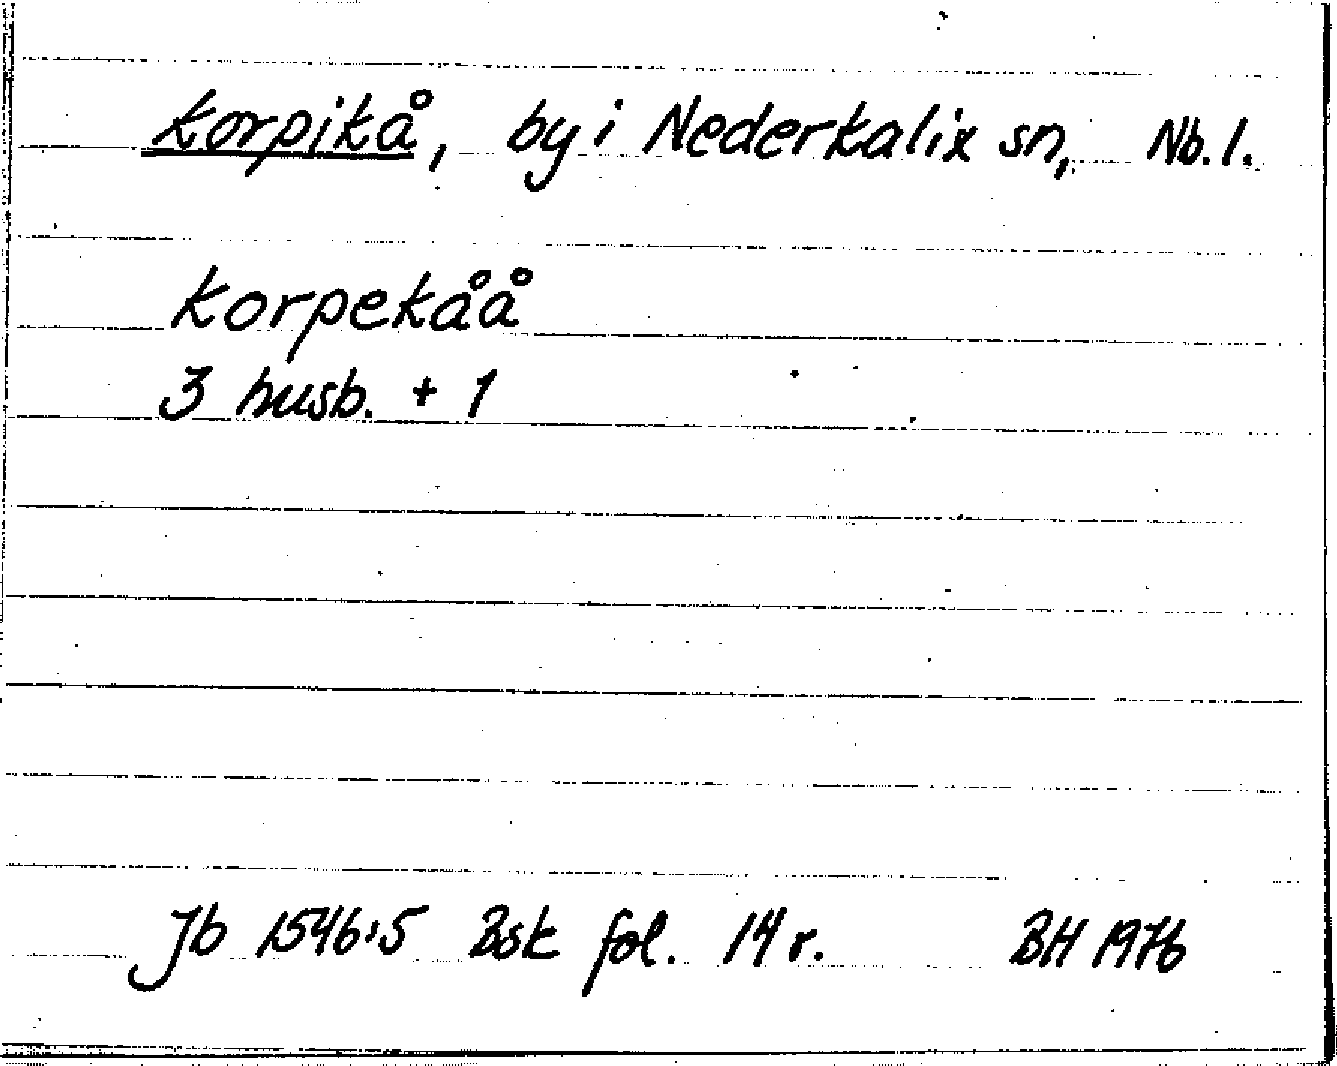 Korpikå, by i Nederkalix sn, Nb. l.
Korpekåå
3 husb. + 1
Jb 1546:5 Bsk fol. 14 r. BH 1976